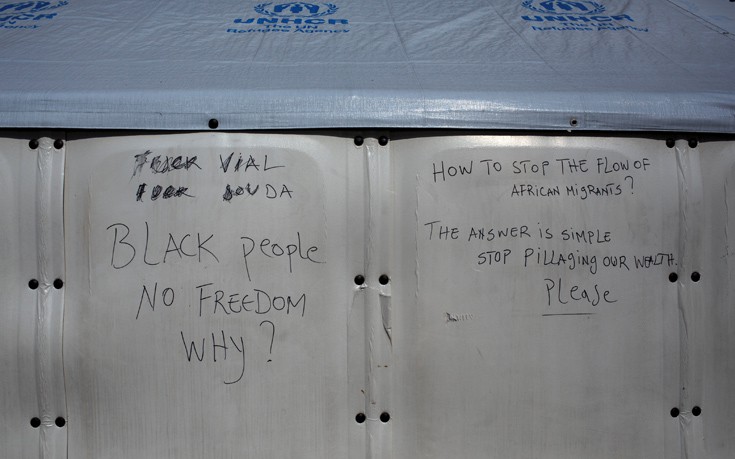 UNHCR
The UN
Refugee Agency
UNHCR
The UN
Refugee Agency
VIAL
BLACK people
NO FREEDOM
WHY?
HOW TO STOP THE FLOW OF
AFRICAN MIGRANTS?
THE ANSWER IS SIMPLE
STOP PILLAGING OUR WEALTH.
Please